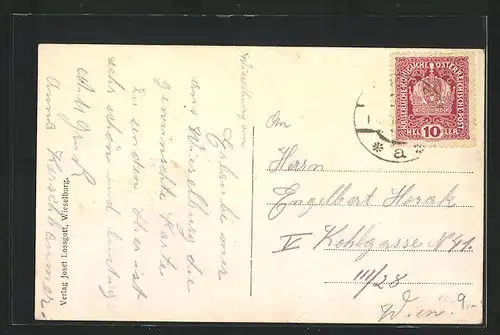 Wieselburg am
Erlaube mir
aus Wieselburg die
gewünschte Karte
zu senden. Hier ist
sehr schön und lustig.
Anna Kerschbaummer.
Verlag Josef Lossgott, Wieselburg.
KAISERLICHE KÖNIGLICHE ÖSTERREICHISCHE POST
HELLER
10
* a *
An
Herrn
Engelbert Horak
V Kohlgasse N 41.
III/28
Wien.
9.-